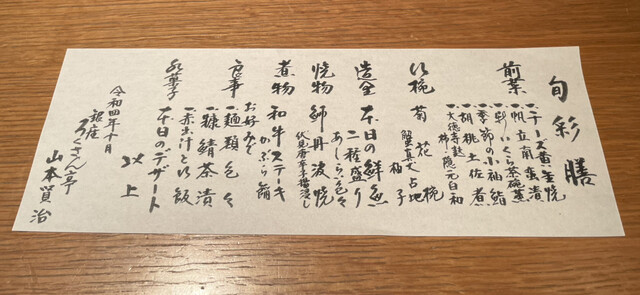 旬彩膳
前菜
一、チーズ黄金焼
一、帆立南蛮漬
一、蟹いくら茶碗蒸
一、季節の小袖鮨
一、胡桃土佐煮
一、大徳寺麩
椀
菊花椀
蟹真丈 占地
柚子
造里
本日の鮮魚
二種盛り
あしらい色々
焼物
鰤丹波焼
煮物
和牛ステーキ
かぶら餡
食事
お好みで
一、麺類色々
一、糠鯖茶漬
一、赤出汁と御飯
水菓子
本日のデザート
以上
令和四年十月
銀座
ろくさん亭
山本賢治